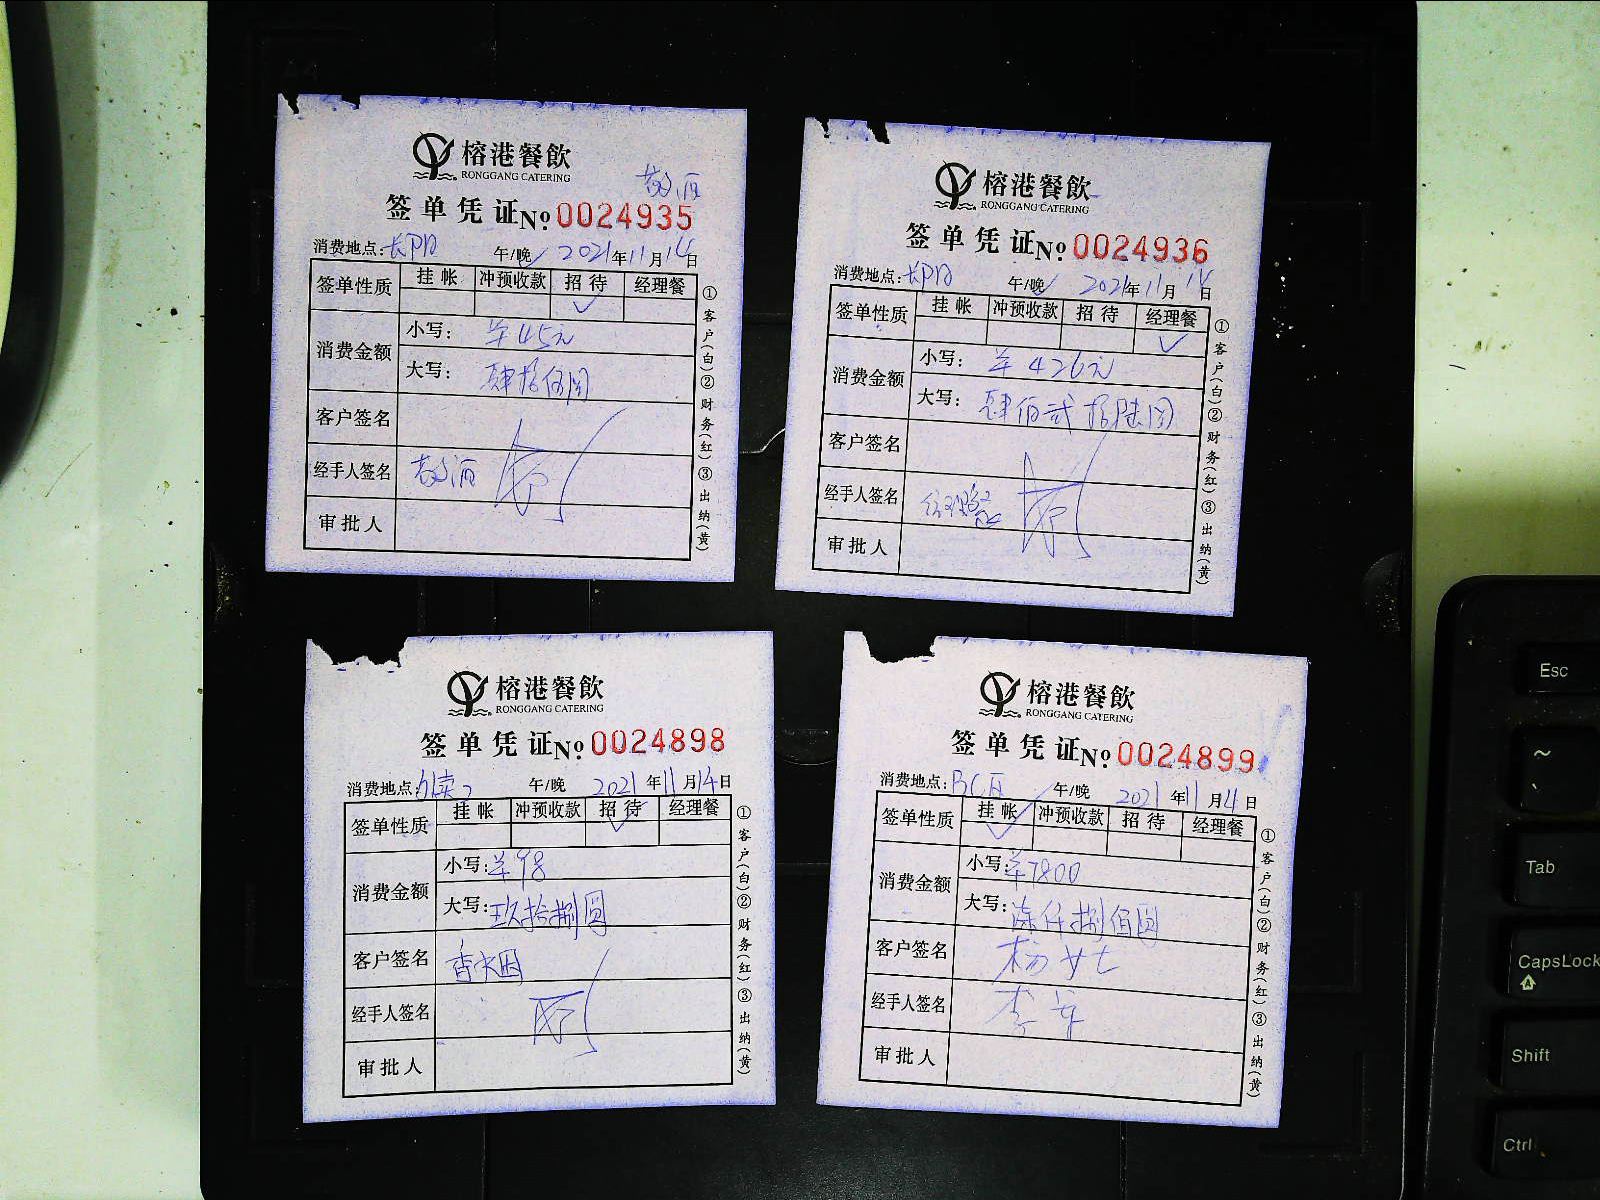 榕港餐飲
RONGGANG CATERING
敬酒
签单凭证№0024935
消费地点: 午/晚✓ 2021年11月14日
签单性质 挂帐 冲预收款 招待 经理餐
✓
消费金额 小写: 羊45元
大写: 肆拾伍圆
客户签名
经手人签名 敬酒
审批人
①客户(白)②财务(红)③出纳(黄)
榕港餐飲
RONGGANG CATERING
签单凭证№0024936
消费地点: 午/晚✓ 2021年11月14日
签单性质 挂帐 冲预收款 招待 经理餐
✓
消费金额 小写: 羊426元
大写: 肆佰贰拾陆圆
客户签名
经手人签名 经理餐
审批人
①客户(白)②财务(红)③出纳(黄)
榕港餐飲
RONGGANG CATERING
签单凭证№0024898
消费地点:外卖 午/晚 2021年11月14日
签单性质 挂帐 冲预收款 招待 经理餐
✓
消费金额 小写:羊98
大写:玖拾捌圆
客户签名
经手人签名
审批人
①客户(白)②财务(红)③出纳(黄)
榕港餐飲
RONGGANG CATERING
签单凭证№0024899
消费地点: 午/晚 2021年11月4日
签单性质 挂帐 冲预收款 招待 经理餐
✓
消费金额 小写:羊7800
大写:柒仟捌佰圆
客户签名 杨女士
经手人签名
审批人
①客户(白)②财务(红)③出纳(黄)
Esc
~
Tab
CapsLock
Shift
Ctrl